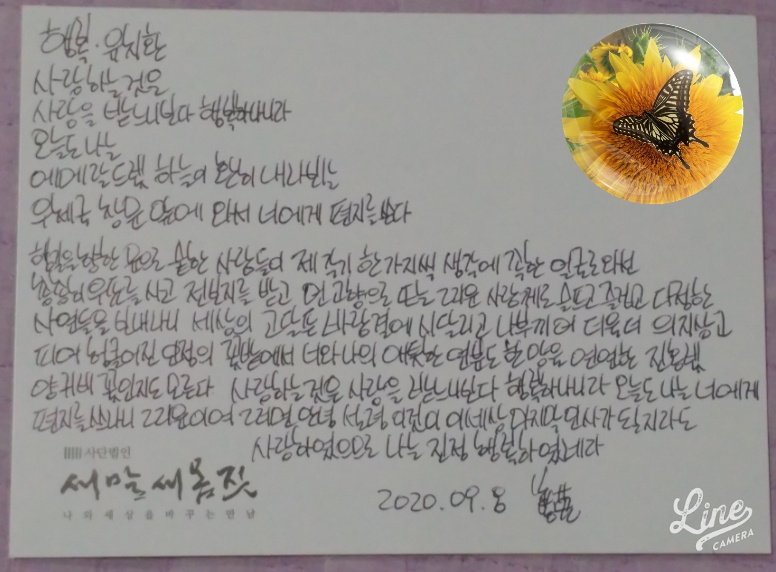 행복·유치환
사랑하는 것을
사랑을 받느니보다 행복하나니라
오늘도 나는
에메랄드빛 하늘이 환히 내다뵈는
우체국 창문 앞에 와서 너에게 편지를 쓴다
행길을 향한 문으로 숱한 사람들이 제각기 한가지씩 생각에 족한 얼굴로 와선
총총히 우표를 사고 전보지를 받고 먼 고향으로 또는 그리운 사람께로 슬프고 즐겁고 다정한
사연들을 보내나니 세상의 고달픈 바람결에 시달리고 나부끼어 더욱더 의지삼고
피어 헝클어진 인정의 꽃밭에서 너와 나의 애틋한 연분도 한 망울 연연한 진홍빛
양귀비 꽃인지도 모른다 사랑하는 것을 사랑을 받느니보다 행복하나니라 오늘도 나는 너에게
편지를 쓰나니 그리운이여 그러면 안녕 설령 이것이 이 세상 마지막 인사가 될지라도
사랑하였으므로 나는 진정 행복하였네라
사단법인
새말새몸짓
나와 세상을 바꾸는 만남
2020.09.8
Line
CAMERA